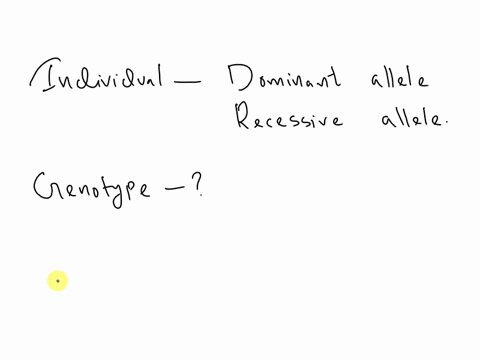 Individual - Dominant allele
Recessive allele.
Genotype - ?